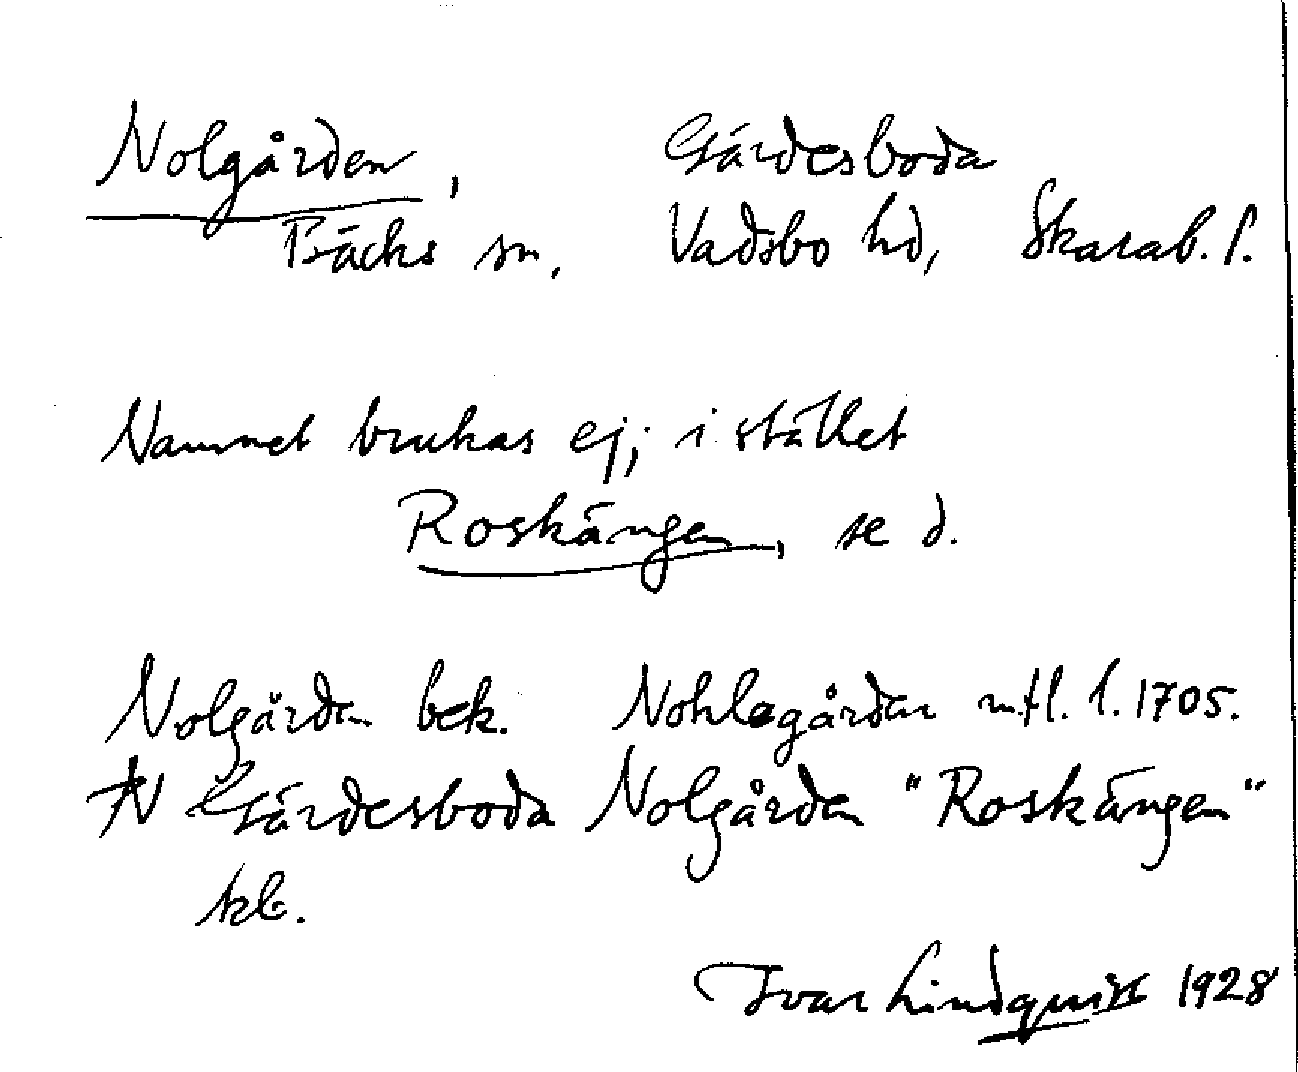 Nolgården, Gärdesboda
Bäcks sn, Vadsbo hd, Skarab. l.
Namnet brukas ej; i stället
Roskängen, se d.
Nolgården bek. Nohlegården mtl. l. 1705.
Gärdesboda Nolgården "Roskängen"
kb.
Ivar Lindquist 1928